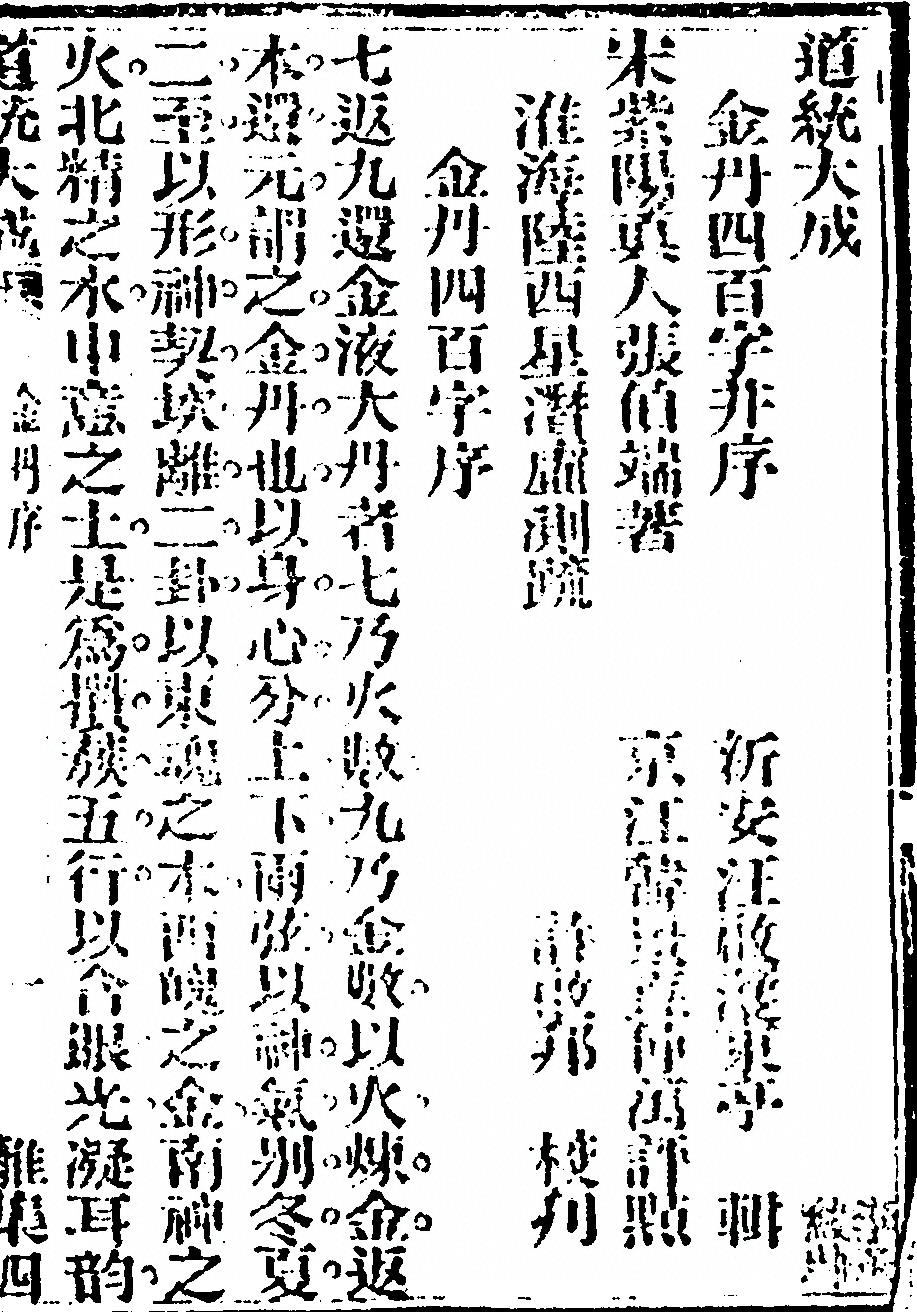 道統大成
金丹四百字并序 安汪啟濩東亭 輯
宋紫陽真人張伯端著 京江韓景垚仲萬評點
淮海陸西星潛虛測疏 許啟邦 校刊
金丹四百字序
七返九還金液大丹者七乃火數九乃金數以火煉金返
本還元謂之金丹也以身心分上下兩弦以神氣別冬夏
二至以形神契坎離二卦以東魂之木西魄之金南神之
火北精之水中意之土是為攢簇五行以含眼光凝耳韻
道統大成 金丹序 一